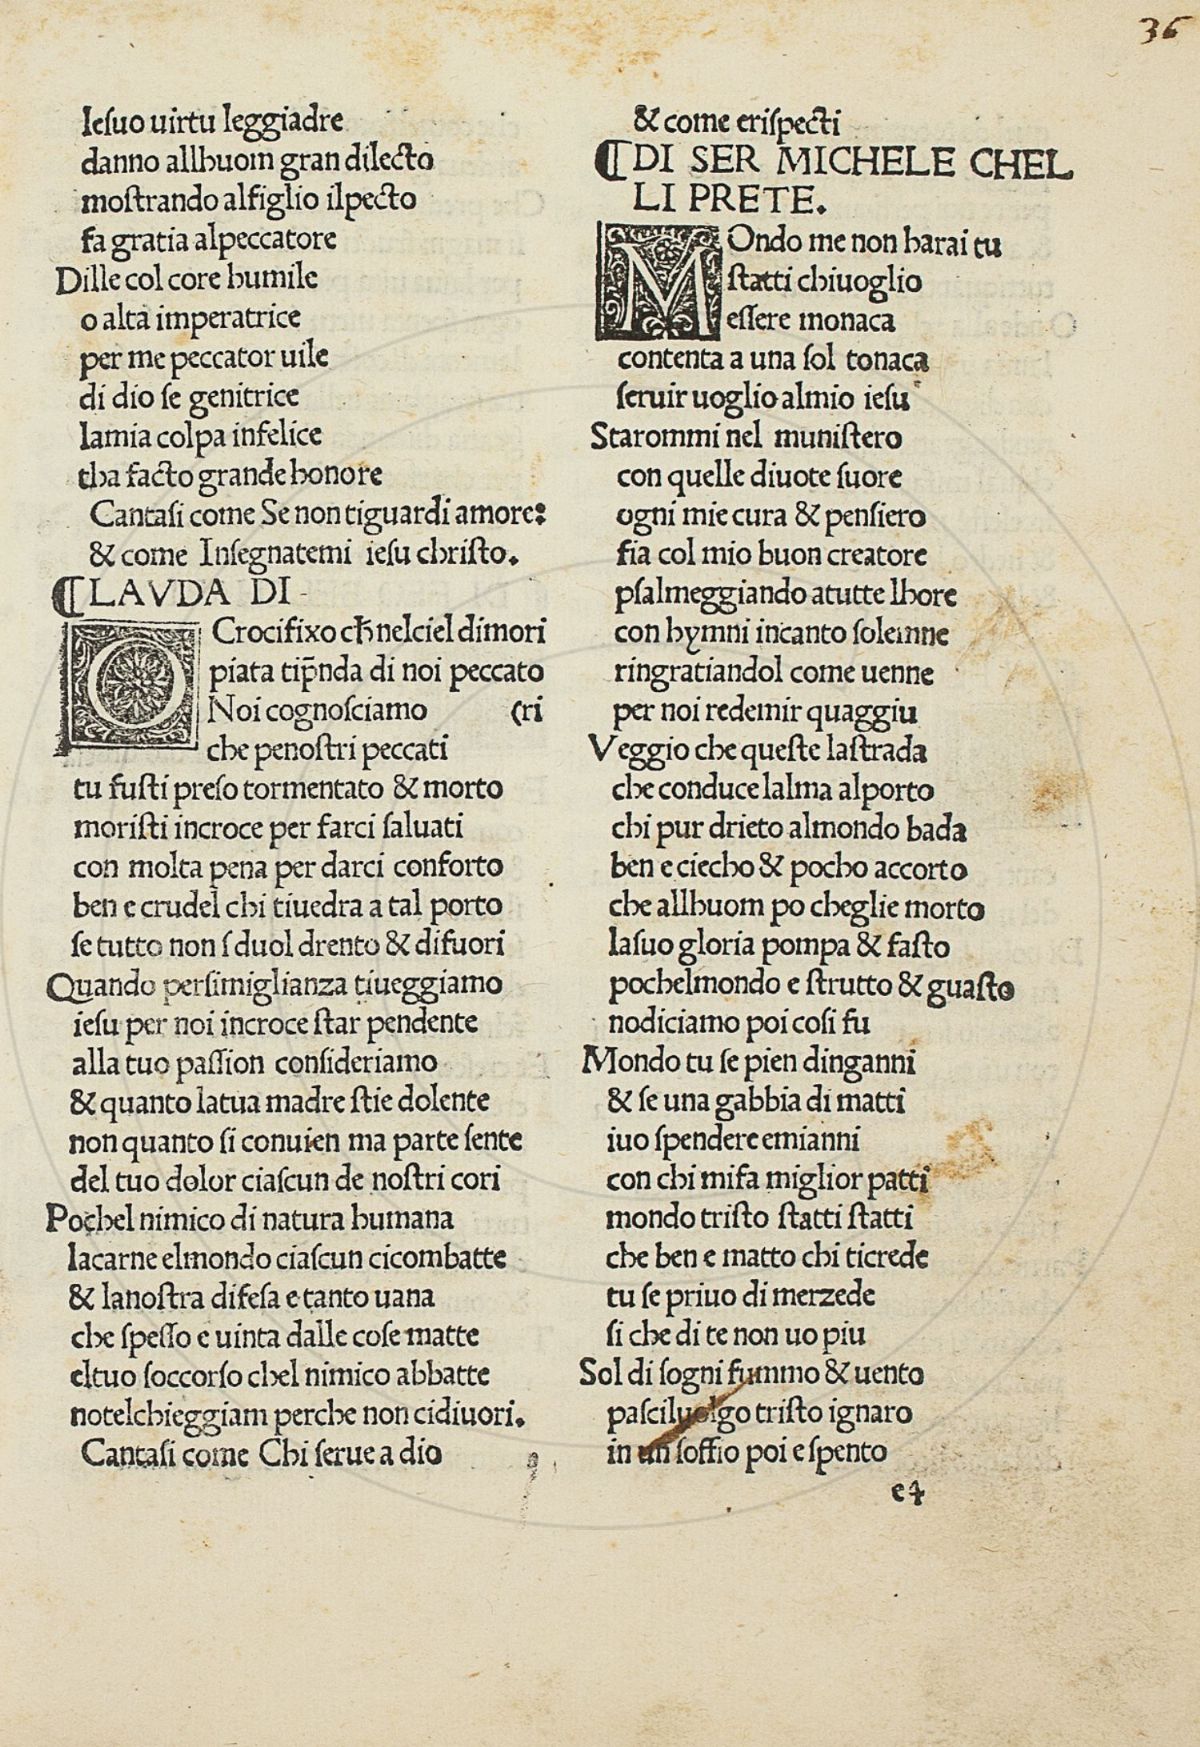 36
Iesuo uirtu leggiadre
danno allhuom gran dilecto
mostrando alfiglio ilpecto
fa gratia alpeccatore
Dille col core humile
o alta imperatrice
per me peccator uile
di dio se genitrice
lamia colpa infelice
tha facto grande honore
Cantasi come Se non tiguardi amore:
& come Insegnatemi iesu christo.
¶ LAVDA DI
O Crocifixo ch̄ nelciel dimori
piata tip̄nda di noi peccato
Noi cognosciamo (ri
che penostri peccati
tu fusti preso tormentato & morto
moristi incroce per farci saluati
con molta pena per darci conforto
ben e crudel chi tiuedra a tal porto
se tutto non sduol drento & difuori
Quando persimiglianza tiueggiamo
iesu per noi incroce star pendente
alla tuo passion consideriamo
& quanto latua madre stie dolente
non quanto si conuien ma parte sente
del tuo dolor ciascun de nostri cori
Pochel nimico di natura humana
lacarne elmondo ciascun cicombatte
& lanostra difesa e tanto uana
che spesso e uinta dalle cose matte
eltuo soccorso chel nimico abbatte
notelchieggiam perche non cidiuori.
Cantasi come Chi serue a dio
& come erispecti
¶ DI SER MICHELE CHEL
LI PRETE.
MOndo me non harai tu
statti chiuoglio
essere monaca
contenta a una sol tonaca
seruir uoglio almio iesu
Starommi nel munistero
con quelle diuote suore
ogni mie cura & pensiero
fia col mio buon creatore
psalmeggiando atutte lhore
con hymni incanto solemne
ringratiandol come uenne
per noi redemir quaggiu
Veggio che queste lastrada
che conduce lalma alporto
chi pur drieto almondo bada
ben e ciecho & pocho accorto
che allhuom po cheglie morto
lasuo gloria pompa & fasto
pochelmondo e strutto & guasto
nodiciamo poi cosi fu
Mondo tu se pien dinganni
& se una gabbia di matti
iuo spendere emianni
con chi mifa miglior patti
mondo tristo statti statti
che ben e matto chi ticrede
tu se priuo di merzede
si che di te non uo piu
Sol di sogni fummo & uento
pasciluolgo tristo ignaro
in un soffio poi e spento
e4